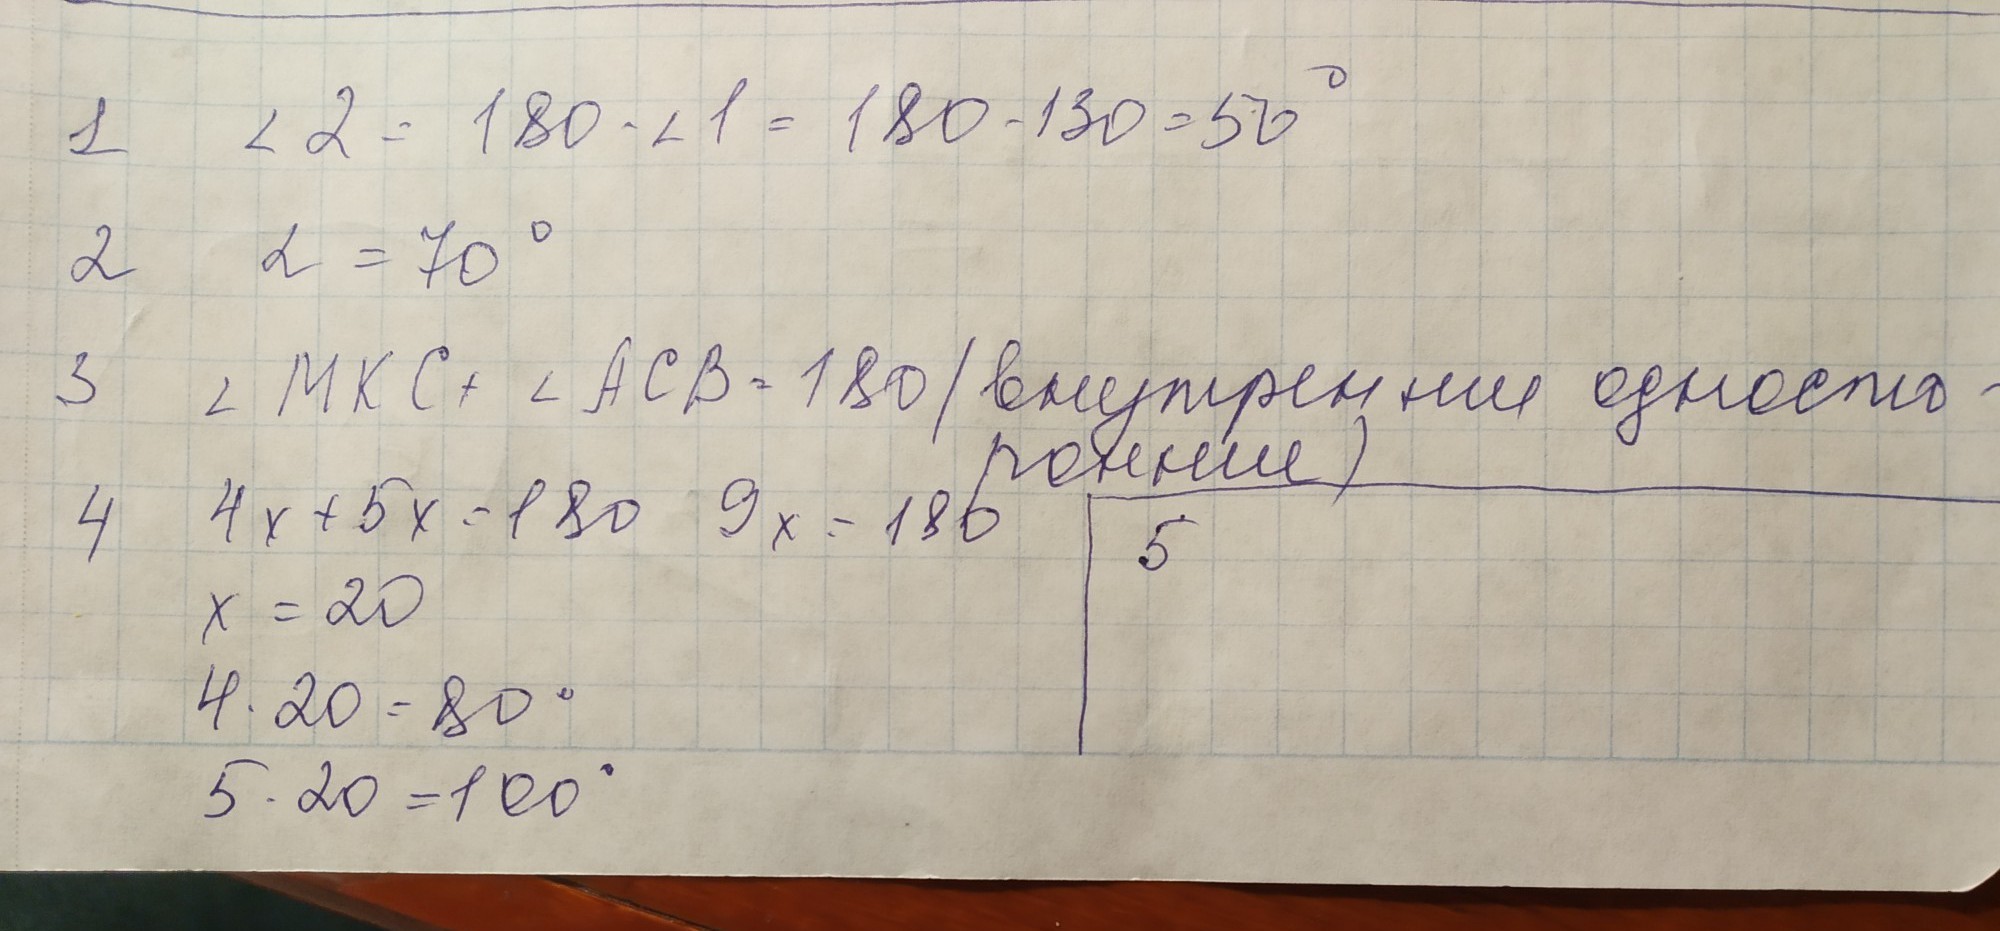 1 ∠2 = 180 - ∠1 = 180 - 130 = 50°
2 ∠ = 70°
3 ∠MKC + ∠ACB = 180 (внутренние односто-
ронние)
4 4x + 5x = 180 9x = 180
5
x = 20
4 · 20 = 80°
5 · 20 = 100°